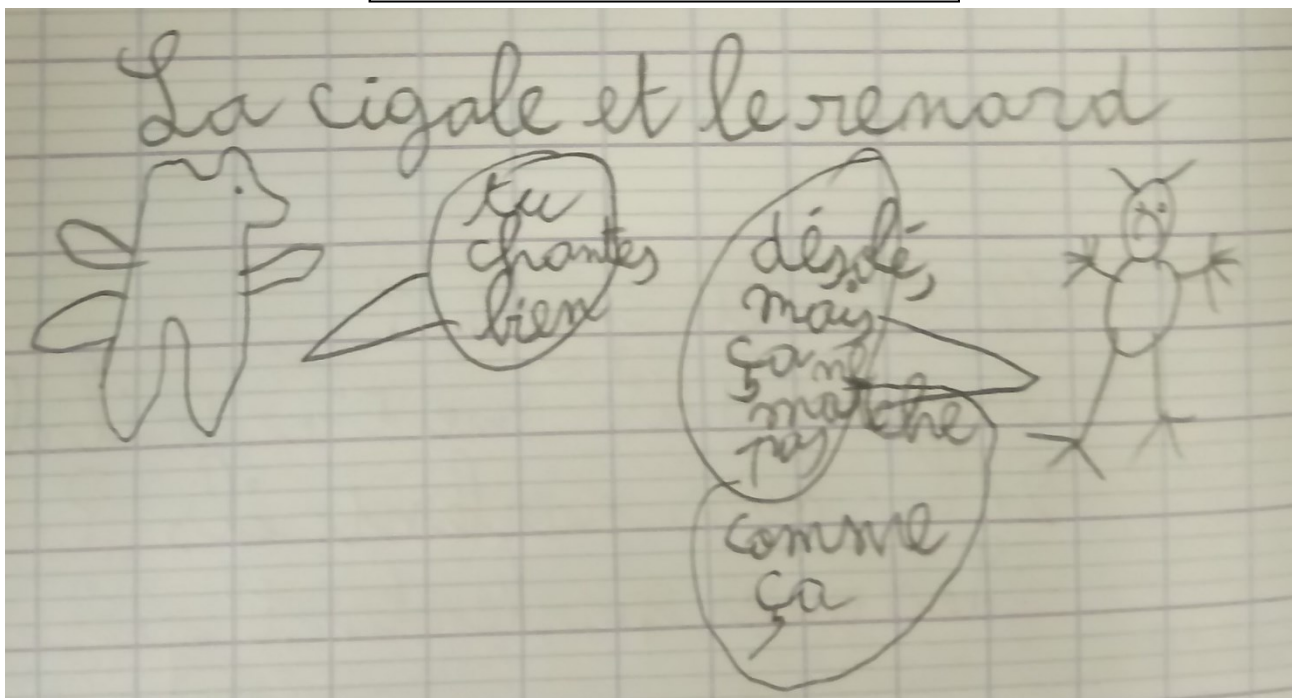 La cigale et le renard
tu
chantes
bien
désolé,
mais
ça ne
marche
pas
comme
ça